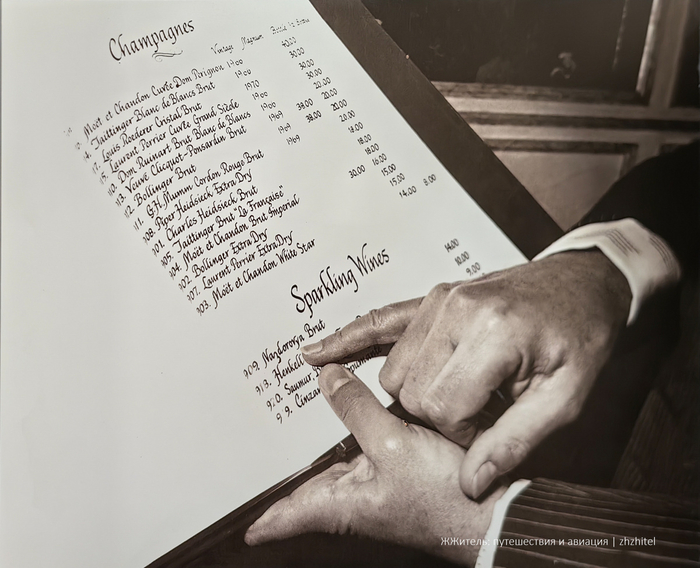 Champagnes
Vintage Magnum Bottle ½ Bottle
Moët et Chandon Cuvée Dom Perignon 1900 40.00
Taittinger Blanc de Blancs Brut 1900 30.00
Louis Roederer Cristal Brut 1970 30.00
115. Laurent Perrier Cuvée Grand Siècle 1900 30.00
110. Dom Ruinart Brut Blanc de Blancs 1969 38.00 20.00
113. Veuve Clicquot-Ponsardin Brut 1969 38.00 20.00
112. Bollinger Brut 1969 20.00
111. G.H. Mumm Cordon Rouge Brut 18.00
108. Piper Heidsieck Extra Dry 18.00
101. Charles Heidsieck Brut 18.00
105. Taittinger Brut "La Française" 18.00
104. Moët et Chandon Brut Imperial 30.00 16.00
102. Bollinger Extra Dry 15.00
107. Laurent Perrier Extra Dry 15.00
103. Moët et Chandon White Star 14.00 8.00
Sparkling Wines
909. Nazdorovya Brut 14.00
913. Henkell 10.00
910. Saumur, 9.00
9 9. Cinzan
ЖЖитель: путешествия и авиация | zhzhitel